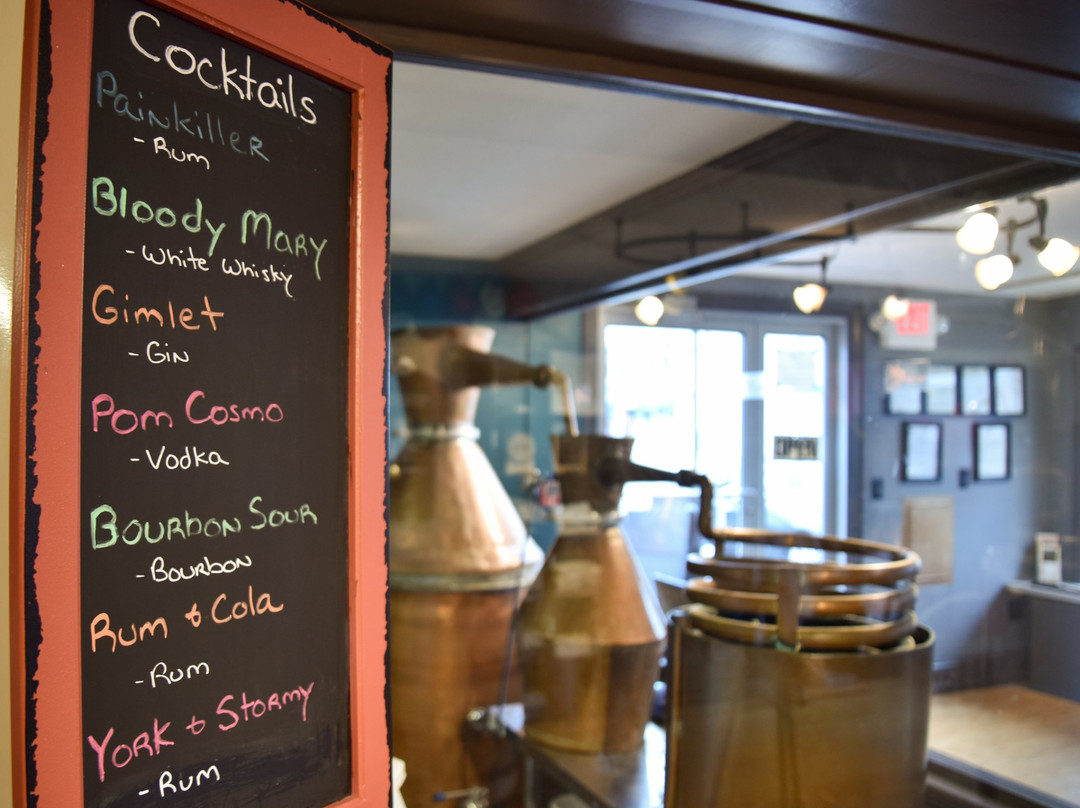 Cocktails
Painkiller
- Rum
Bloody Mary
- White Whisky
Gimlet
- Gin
Pom Cosmo
- Vodka
Bourbon Sour
- Bourbon
Rum & Cola
- Rum
York & Stormy
- Rum
EXIT
OPEN